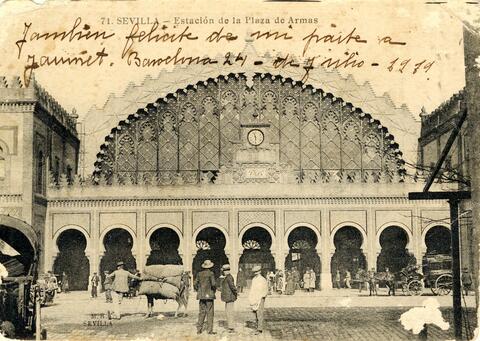 71. SEVILLA – Estación de la Plaza de Armas
Tambien felicite de mi parte a
Jaumet. Barcelona 24 - de Julio - 1919
SEVILLA